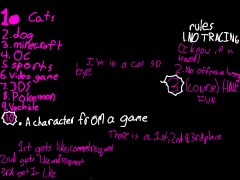 1. Cats
2. dog
3. minecraft
4. OC
5. sports
6. Video game
7. 3DS
8. Pokemon
9. Vechicle
10. A character from a game
I'm in a cat SD
bye
rules
1.NO TRACING
(I know if u
traced)
2. No offensive
3. (course) HAVE
FUN
There is a 1st, 2nd & 3rd place
1st gets like, comment, request
2nd gets like and request
3rd get 1 like